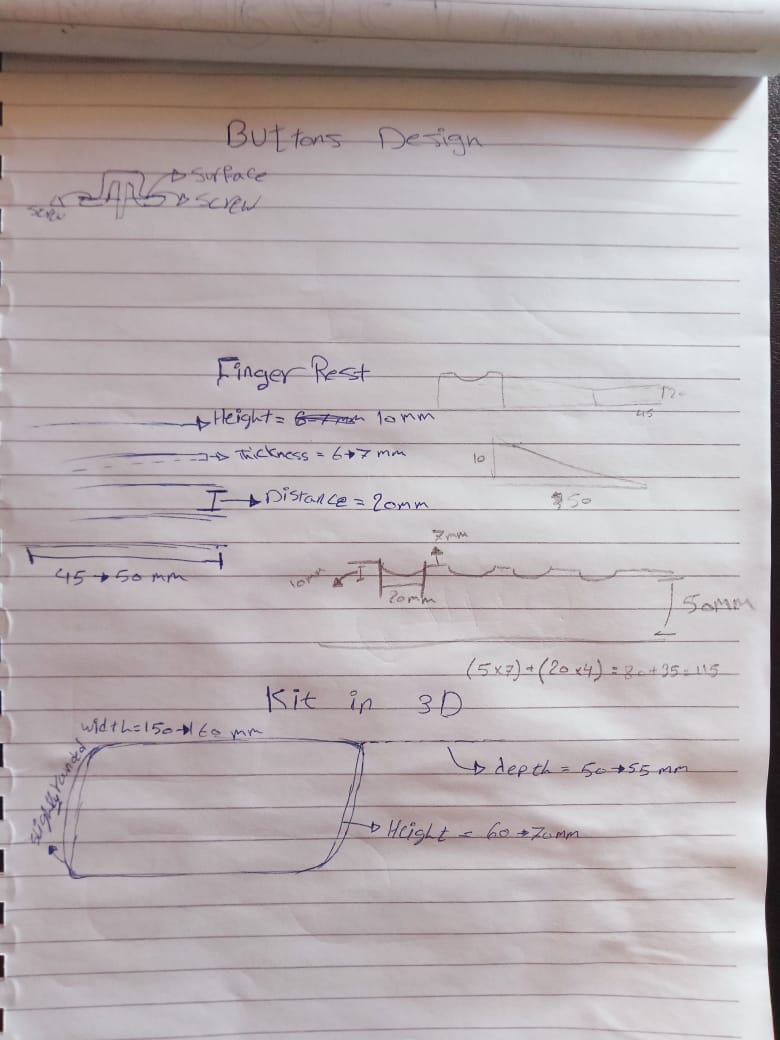 Buttons Design
Surface
Screw
Screw
Finger Rest
Height = 6-7mm 10mm
45
Thickness = 6→7 mm
10
Distance = 20mm
50
7mm
45→50 mm
10mm
20mm
50mm
(5x7)+(20x4)=80+35=115
Kit in 3D
width=150→160 mm
slightly rounded
depth = 50→55 mm
Height = 60→70mm